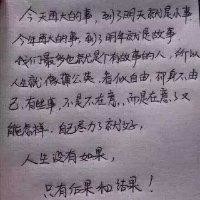 今天再大的事，到了明天就是小事
今年再大的事，到了明年就是故事
我们最多也就是个有故事的人，所以
人生就像蒲公英，看似自由，却身不由
己。有些事，不是不在意，而是在意了又
能怎样，自己尽力了就好，
人生没有如果，
只有后果和结果！